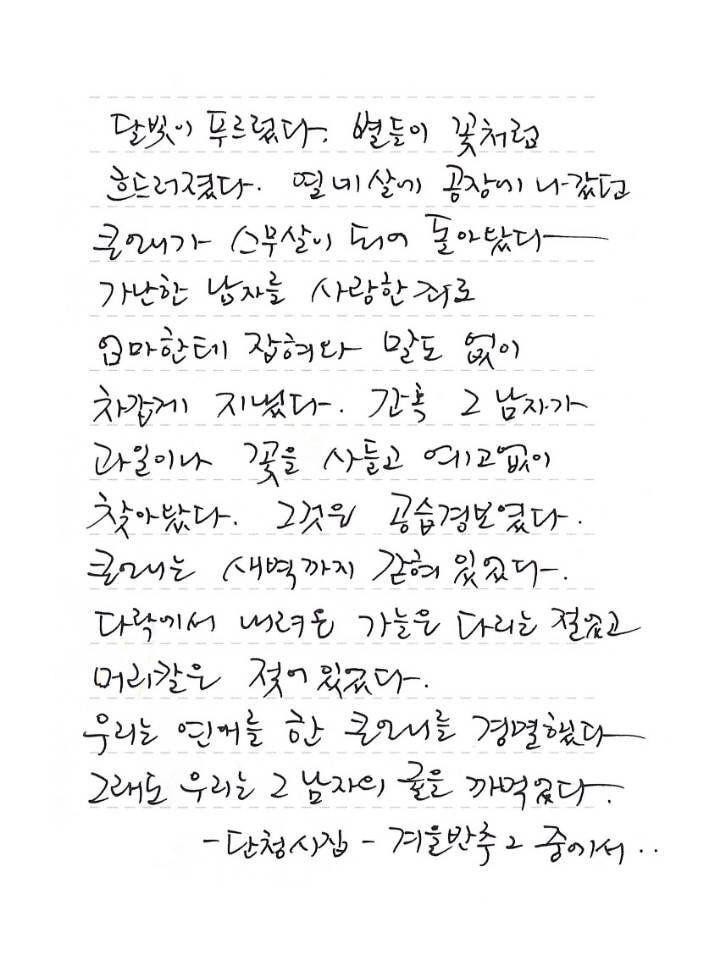 달빛이 푸르렀다. 별들이 꽃처럼
흐드러졌다. 열네살에 공장에 나갔던
큰애가 스무살이 되어 돌아왔다
가난한 남자를 사랑한 죄로
엄마한테 잡혀와 말도 없이
차갑게 지냈다. 간혹 그 남자가
과일이나 꽃을 사들고 예고없이
찾아왔다. 그것은 공습경보였다.
큰애는 새벽까지 갇혀 있었다.
다락에서 내려온 가늘은 다리는 절었고
머리칼은 젖어 있었다.
우리는 연애를 한 큰언니를 경멸했다
그래도 우리는 그 남자의 귤을 까먹었다.
-단청시집 - 겨울반추2 중에서 ..